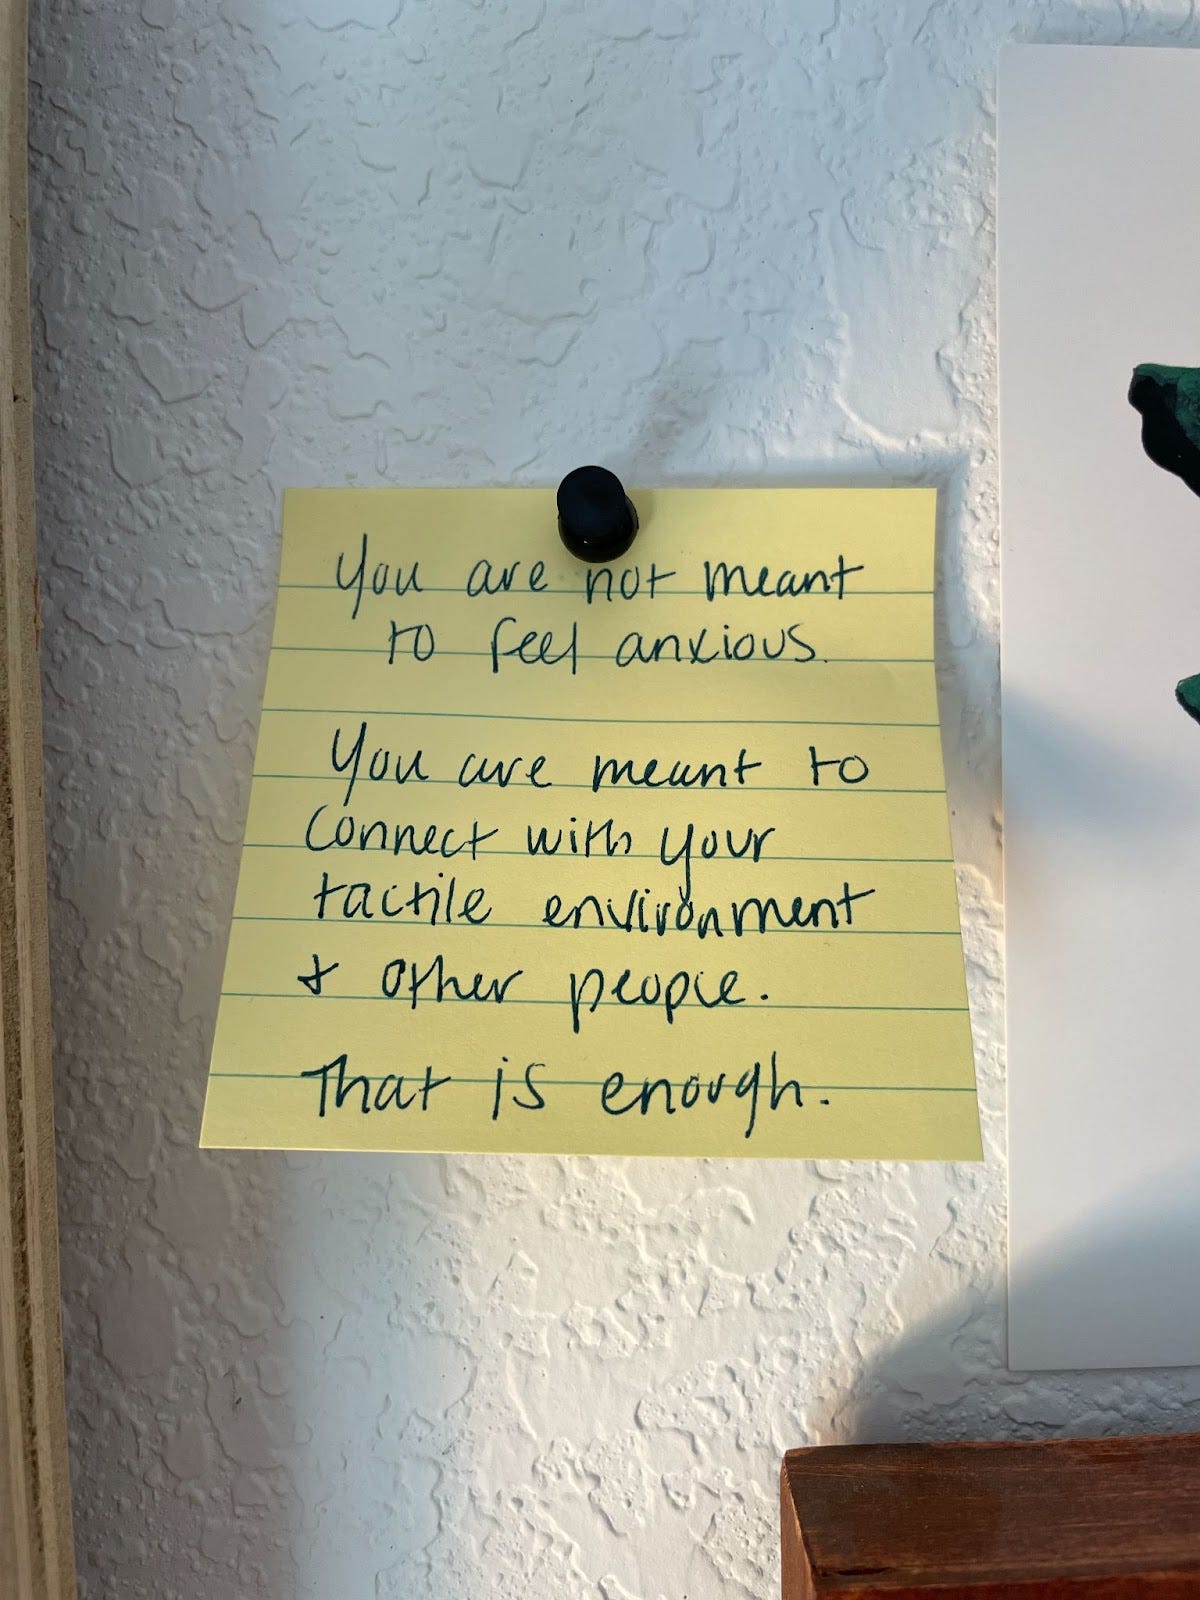 You are not meant
to feel anxious.
You are meant to
connect with your
tactile environment
& other people.
That is enough.